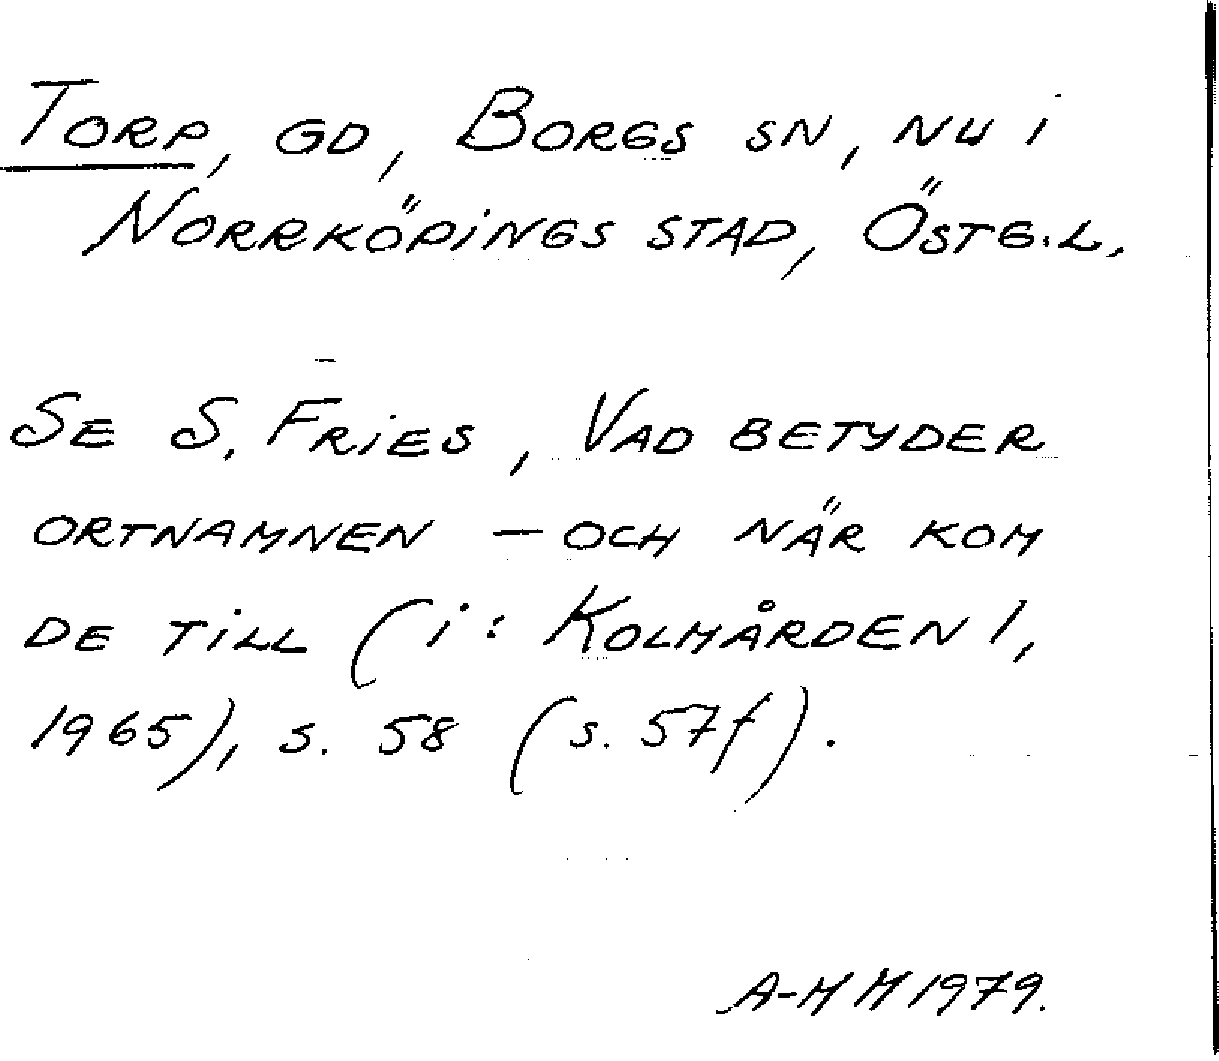 TORP, GD, BORGS SN, NU I
NORRKÖPINGS STAD, ÖSTG.L.
SE S. FRIES, VAD BETYDER
ORTNAMNEN – OCH NÄR KOM
DE TILL (i: KOLMÅRDEN 1,
1965), s. 58 (s. 57f).
A-M M 1979.